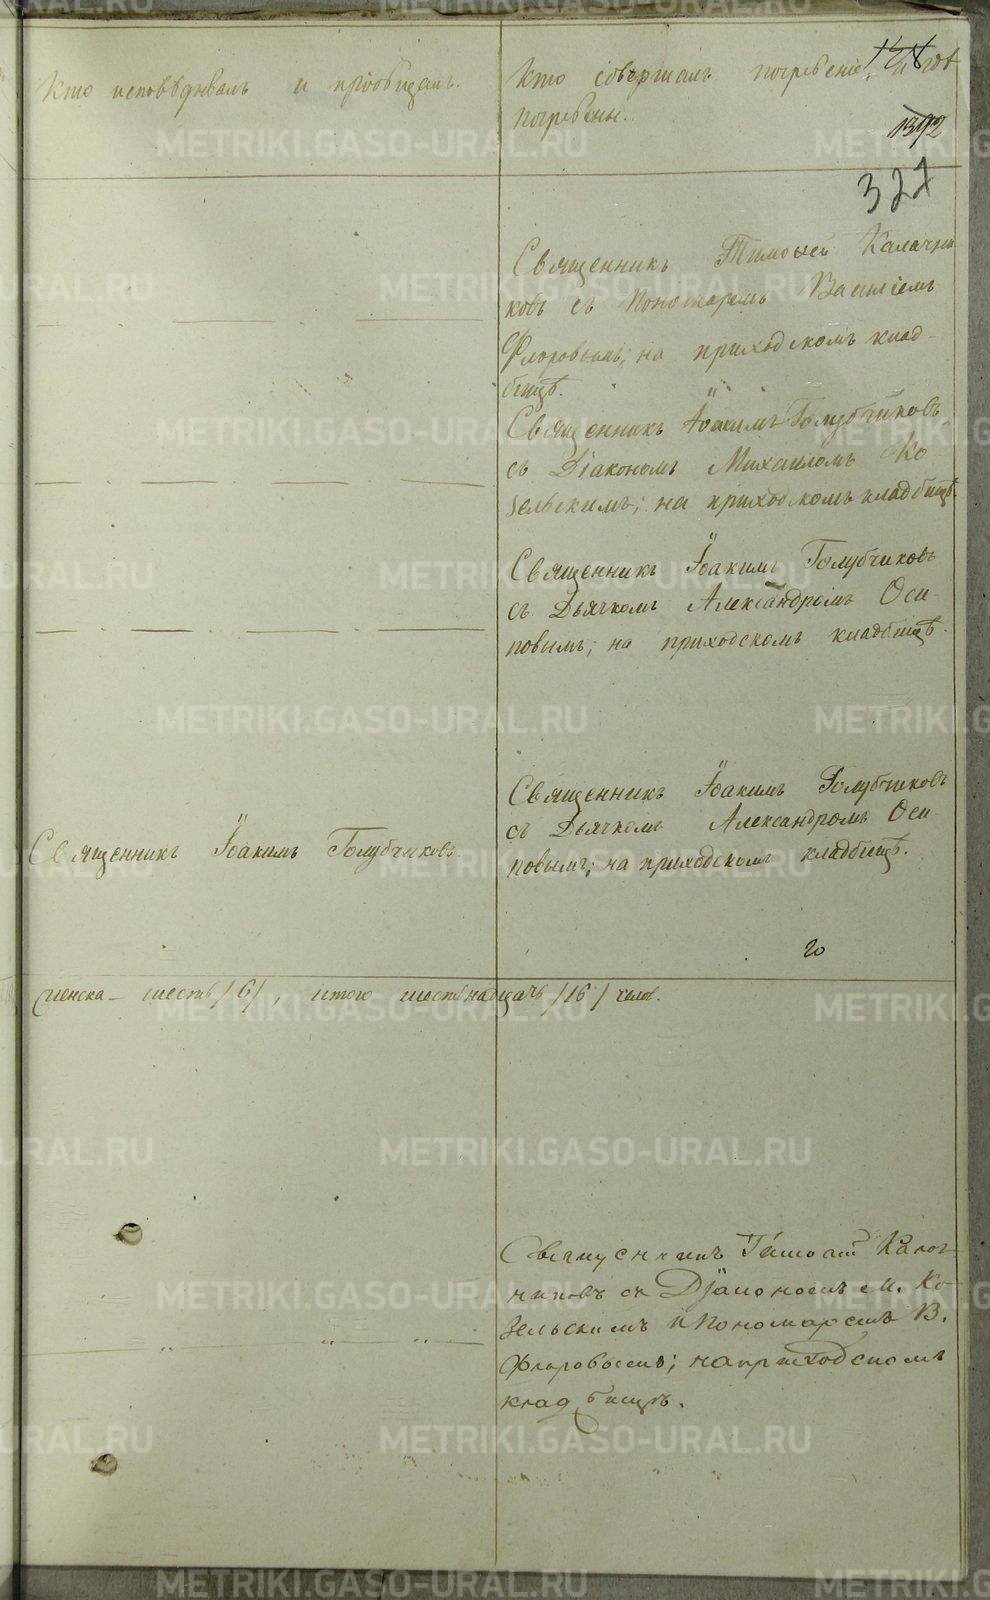 Кто исповѣдывалъ и прiобщалъ.
Кто совершалъ погребенiе и гдѣ
погребены.
1392
327
Священникъ Тимоѳей Калачни
ковъ съ Пономаремъ Василiемъ
Флоровымъ; на приходскомъ клад-
бищѣ.
Священникъ Іоакимъ Голубчиковъ
съ Дiакономъ Михаиломъ Ко
зельскимъ; на приходскомъ кладбищѣ.
Священникъ Іоакимъ Голубчиковъ
съ Дьячкомъ Александромъ Оси-
повымъ; на приходскомъ кладбищѣ.
Священникъ Іоакимъ Голубчиковъ
съ Дьячкомъ Александромъ Оси-
повымъ; на приходскомъ кладбищѣ.
Священникъ Іоакимъ Голубчиковъ.
женска – шесть /6/, итого шестьнадцать /16/ челов.
Священникъ Тимоѳей Калач-
никовъ съ Дiакономъ М. Ко-
зельскимъ и Пономаремъ В.
Флоровымъ; на приходскомъ
кладбищѣ.
METRIKI.GASO-URAL.RU